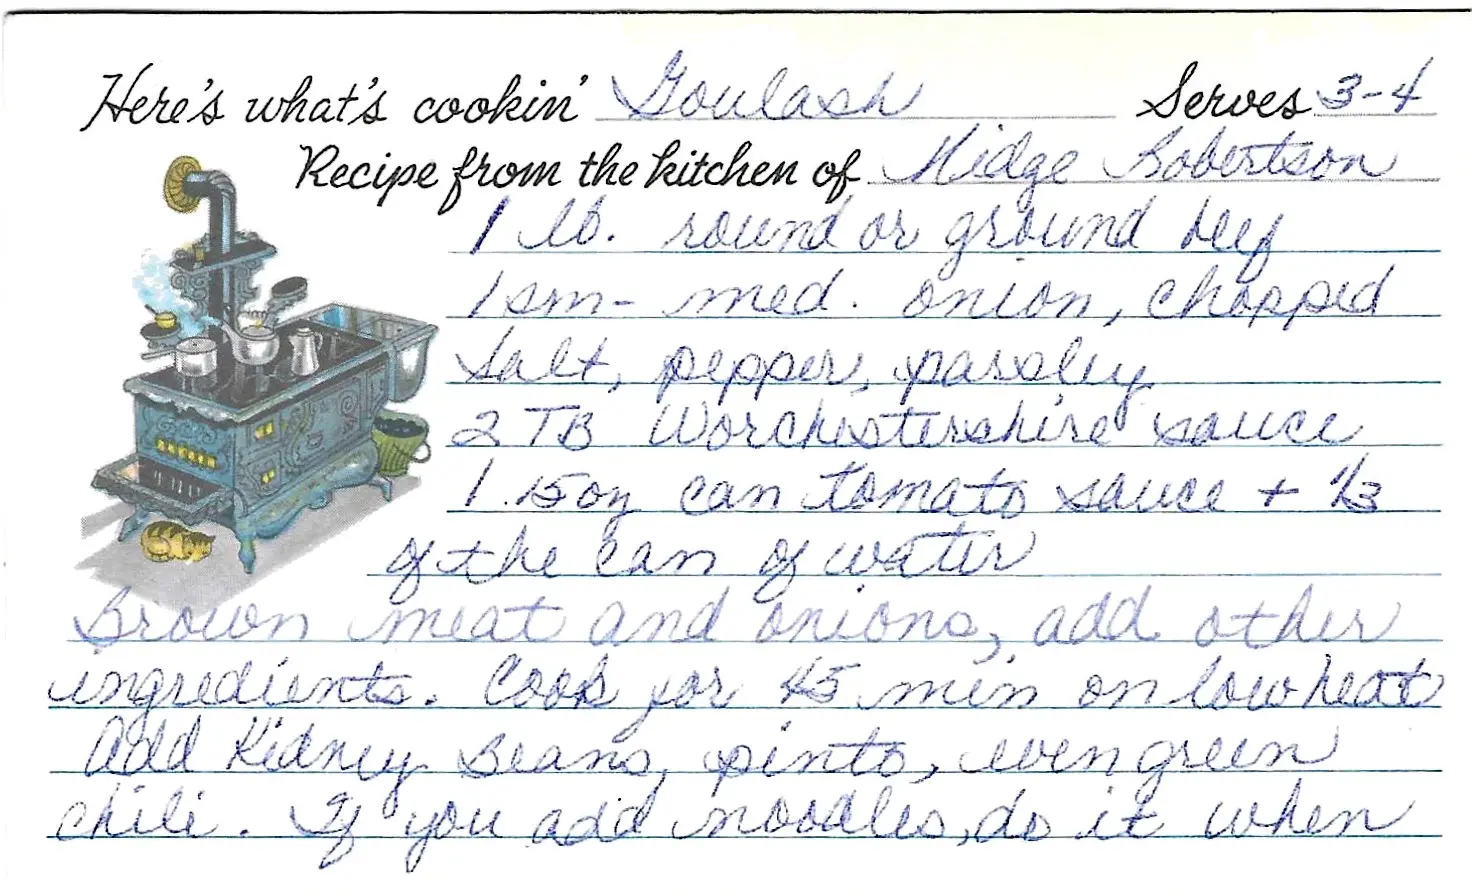 Here's what's cookin' Goulash Serves 3-4
Recipe from the kitchen of Midge Robertson
1 lb. round or ground beef
1 sm- med. onion, chopped
Salt, pepper, parsley
2 TB Worchestershire sauce
1. 15 oz can tomato sauce + 1/3
of the can of water
Brown meat and onions, add other
ingredients. Cook for 45 min on low heat
Add Kidney Beans, pinto, even green
chili. If you add noodles, do it when